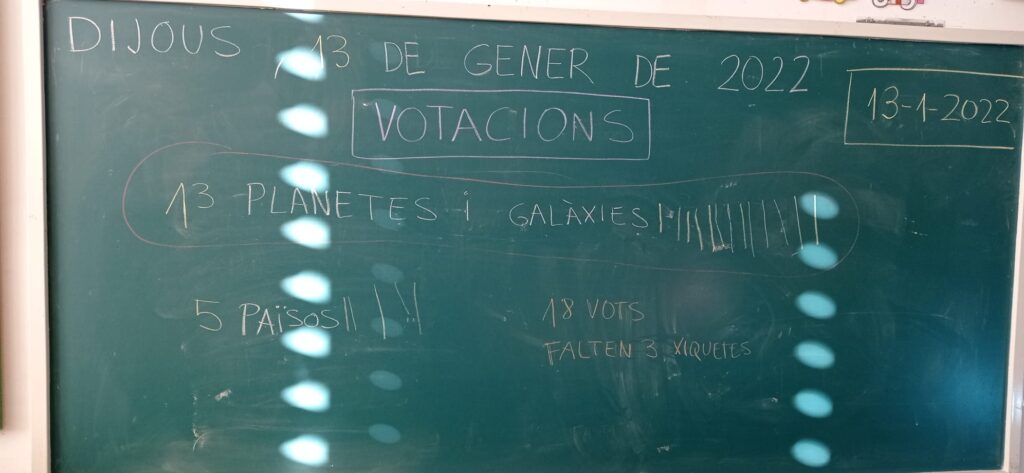 DIJOUS, 13 DE GENER DE 2022
13-1-2022
VOTACIONS
13 PLANETES i GALÀXIES
5 PAÏSOS
18 VOTS
FALTEN 3 XIQUETES